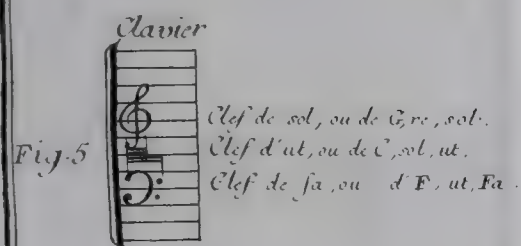 Clavier
Clef de sol, ou de G, re, sol.
Fig. 5
Clef d'ut, ou de C, sol, ut.
Clef de fa, ou d'F, ut, Fa.